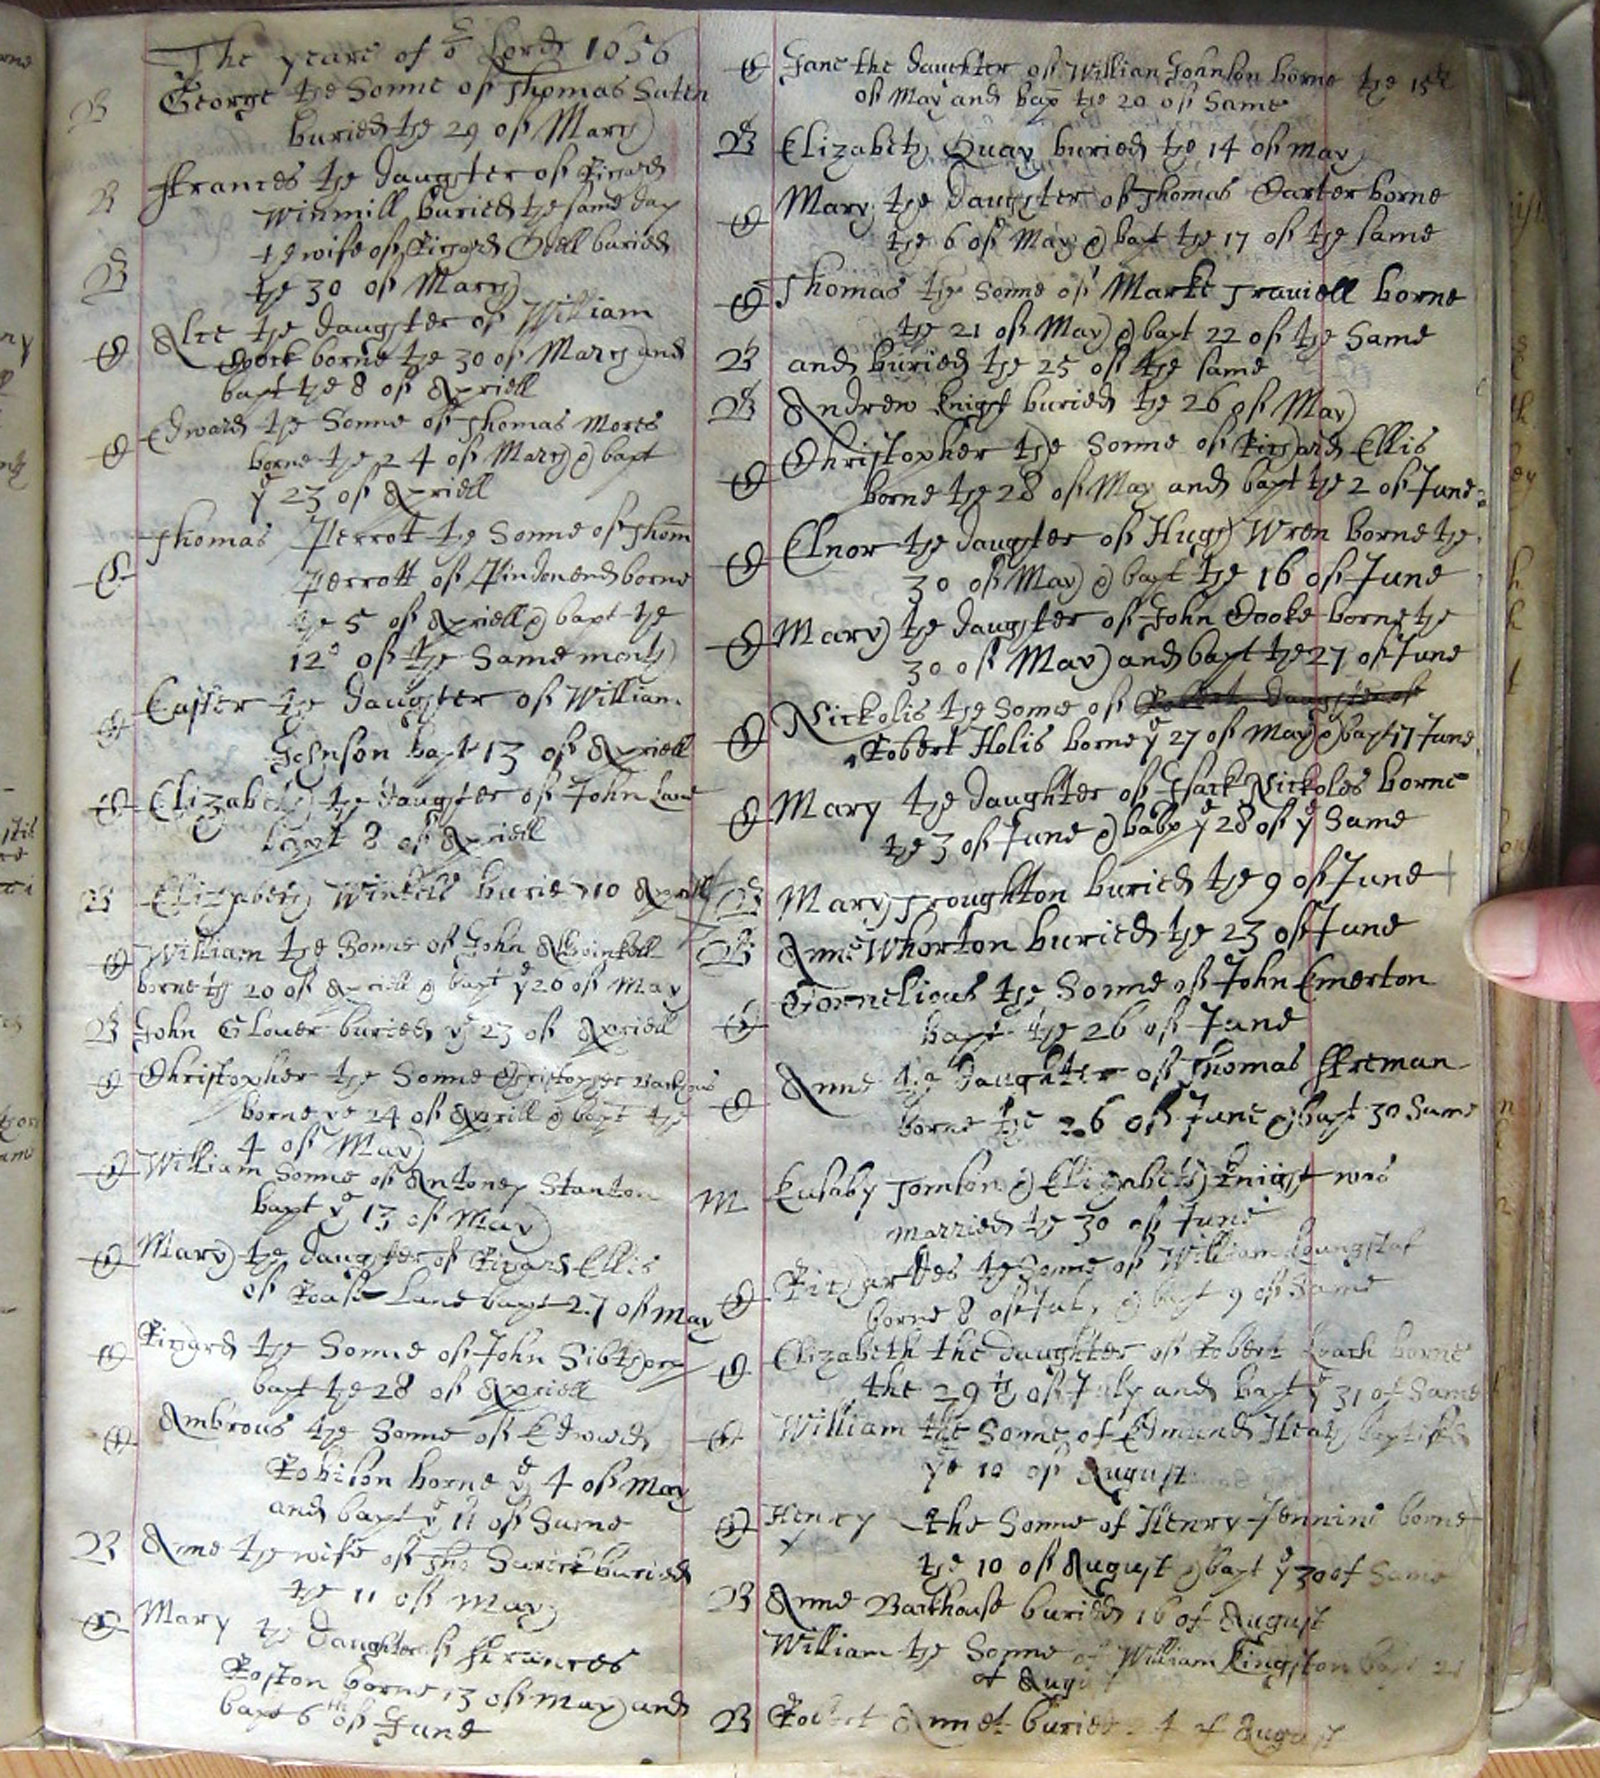 The yeare of or Lord 1656
B George the Sonne of Thomas
buried the 29 of March
B ffrances the daughter of Richard
Winmill buried the same day
the wife of Richard Odell buried
B the 30 of March
C Alce the daughter of William
borne the 30 of March and
bapt the 8 of Apriell
C Edward the Sonne of Thomas Mores
borne the 24 of March & bapt
ye 23 of Apriell
Thomas Perrott the Sonne of Thom
C Perrott of borne
the 5 of Apriell & bapt the
12o of the Same month
C Easter the daughter of William
Johnson bapt 13 of Apriell
C Elizabeth the daughter of John Lane
bapt 8 of Apriell
B Elizabeth buried 10 Aprill
C William the Sonne of John
borne the 20 of Apriell & bapt ye 20 of May
B John Glover buried ye 23 of Apriell
C Christopher the Sonne Christopher
borne ye 24 of Aprill & bapt the
4 of May
C William Sonne of Antoney Stanton
bapt ye 13 of May
C Mary the daughter of Richard Ellis
of Lane bapt 27 of May
C Richard the Sonne of John Sibthorp
bapt the 28 of Apriell
C Ambrous the Sonne of Edward
Robison borne ye 4 of May
and bapt ye 11 of Same
B Anne the wife of Tho buried
the 11 of May
C Mary the Daughter of ffrances
Poston borne 13 of May and
bapt 6th of June
C Jane the daughter of William Johnson borne the 15th
of May and bap the 20 of Same
B Elizabeth Quay buried the 14 of May
Mary the daughter of Thomas Carter borne
C the 6 of May & bapt the 17 of the same
C Thomas the Sonne of Marke Traviell borne
the 21 of May & bapt 22 of the Same
B and buried the 25 of the same
B Andrew Knight buried the 26 of May
Christopher the Sonne of Richard Ellis
C borne the 28 of May and bapt the 2 of June
C Elnor the daughter of Hugh Wren borne the
30 of May & bapt the 16 of June
C Mary the daughter of John Cooke borne the
30 of May and bapt the 27 of June
Nickolis the Sonne of
C Robert Holis borne ye 27 of May & bapt 17 June
C Mary the daughter of Isack Nickoles borne
the 3 of June & babp ye 28 of ye Same
B Mary Troughton buried the 9 of June
B Anne Whorton buried the 23 of June
Cornelious the Sonne of John Emerton
C bapt the 26 of June
Anne the daughter of Thomas ffreman
C borne the 26 of June & bapt 30 Same
M Eusaby Tomson & Elizabeth Knight was
married the 30 of June
C the Sonne of William
borne 8 of July & bapt 9 of Same
C Elizabeth the daughter of Robert borne
the 29th of July and bapt ye 31 of Same
C William the Sonne of Edmund Heath
ye 10 of August
C Henry the Sonne of Henry Jennins borne
the 10 of August & bapt ye 30 of Same
B Anne Backhouse buried 16 of August
William the Sonne of William Kingston
of
B Robert buried of August